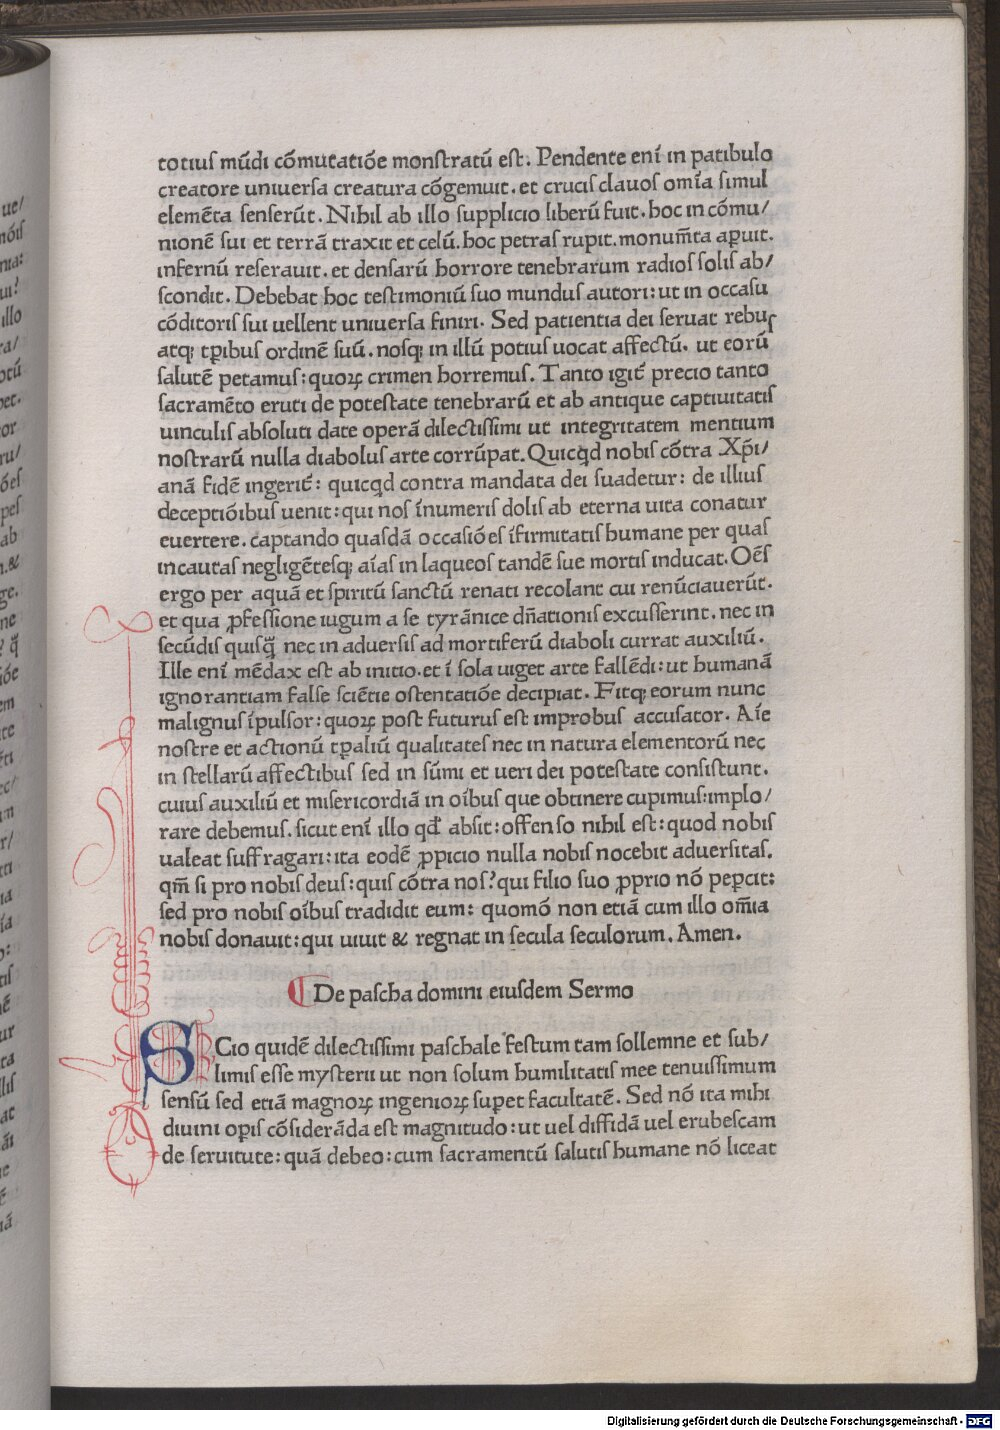 totiuſ mūdi cōmutatiōe monſtratū eſt. Pendente enī in patibulo
creatore uniuerſa creatura cōgemuit. et cruciſ clauoſ omīa ſimul
elemēta ſenſerūt. Nihil ab illo ſupplicio liberū fuit. hoc in cōmu/
nionē ſui et terrā traxit et celū. hoc petraſ rupit. monum̄ta aꝑuit.
infernū reſerauit. et denſarū horrore tenebrarum radioſ ſoliſ ab/
ſcondit. Debebat hoc teſtimoniū ſuo munduſ autori: ut in occaſu
cōditoriſ ſui uellent uniuerſa finiri. Sed patientia dei ſeruat rebuſ
atq; tꝑibuſ ordinē ſuū. noſq; in illū potiuſ uocat affectū. ut eorū
ſalutē petamuſ: quoꝝ crimen horremuſ. Tanto igit̄ precio tanto
ſacramēto eruti de poteſtate tenebrarū et ab antique captiuitatiſ
uinculiſ abſoluti date operā dilectiſſimi ut integritatem mentium
noſtrarū nulla diaboluſ arte corrūpat. Quicq̄d nobiſ cōtra Xp̄i/
anā fidē ingerit̄: quicq̄d contra mandata dei ſuadetur: de illiuſ
deceptiōibuſ uenit: qui noſ īnumeriſ doliſ ab eterna uita conatur
euertere. captando quaſdā occaſiōeſ īfirmitatiſ humane per quaſ
incautaſ negligēteſq; aīaſ in laqueoſ tandē ſue mortiſ inducat. Oēſ
ergo per aquā et ſpiritū ſanctū renati recolant cui renūciauerūt.
et qua ꝓfeſſione iugum a ſe tyrānice dn̄ationiſ excuſſerint. nec in
ſecūdiſ quiſꝗ̄ nec in aduerſiſ ad mortiferū diaboli currat auxiliū.
Ille enī mēdax eſt ab initio. et ī ſola uiget arte fallēdi: ut humanā
ignorantiam falſe ſciētie oſtentatiōe decipiat. Fitq; eorum nunc
malignuſ īpulſor: quoꝝ poſt futuruſ eſt improbuſ accuſator. Aīe
noſtre et actionū tꝑaliū qualitateſ nec in natura elementorū nec
in ſtellarū affectibuſ ſed in ſūmi et ueri dei poteſtate conſiſtunt.
cuiuſ auxiliū et miſericordiā in oībuſ que obtinere cupimuſ: implo/
rare debemuſ. ſicut enī illo qd̄ abſit: offenſo nihil eſt: quod nobiſ
ualeat ſuffragari: ita eodē ꝓpicio nulla nobiſ nocebit aduerſitaſ.
qm̄ ſi pro nobiſ deuſ: quiſ cōtra noſ? qui filio ſuo ꝓprio nō peꝑcit:
ſed pro nobiſ oībuſ tradidit eum: quomō non etiā cum illo om̄ia
nobiſ donauit: qui uiuit & regnat in ſecula ſeculorum. Amen.
¶ De paſcha domini eiuſdem Sermo
SCio quidē dilectiſſimi paſchale feſtum tam ſollemne et ſub/
limiſ eſſe myſterii ut non ſolum humilitatiſ mee tenuiſſimum
ſenſū ſed etiā magnoꝝ ingenioꝝ ſuꝑet facultatē. Sed nō ita mihi
diuini oꝑiſ cōſiderāda eſt magnitudo: ut uel diffidā uel erubeſcam
de ſeruitute: quā debeo: cum ſacramentū ſalutiſ humane nō liceat
Digitalisierung gefördert durch die Deutsche Forschungsgemeinschaft - DFG